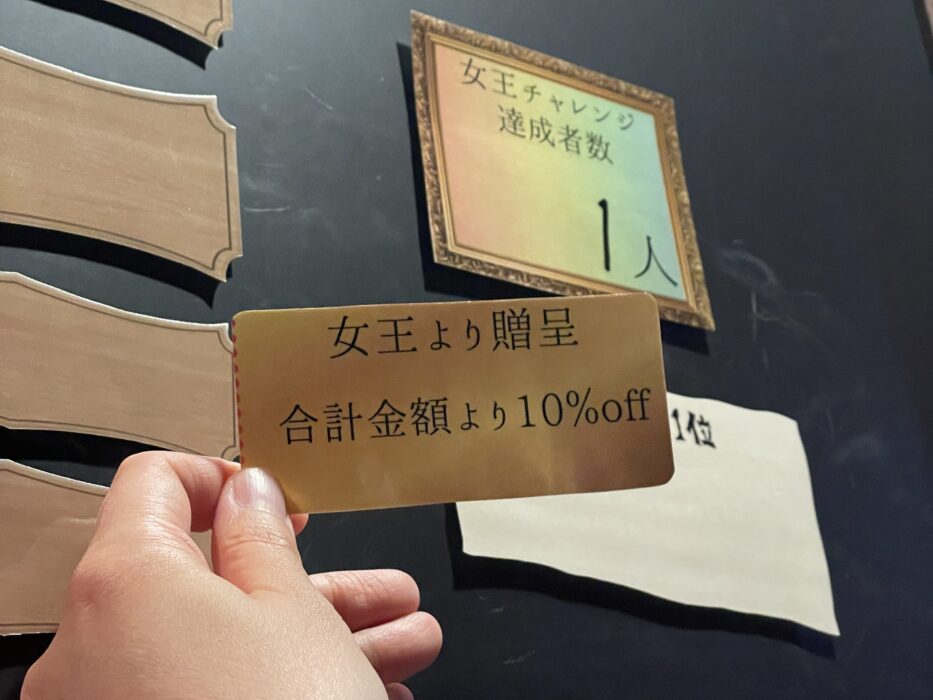 女王チャレンジ
達成者数
1人
女王より贈呈
合計金額より10%off
1位